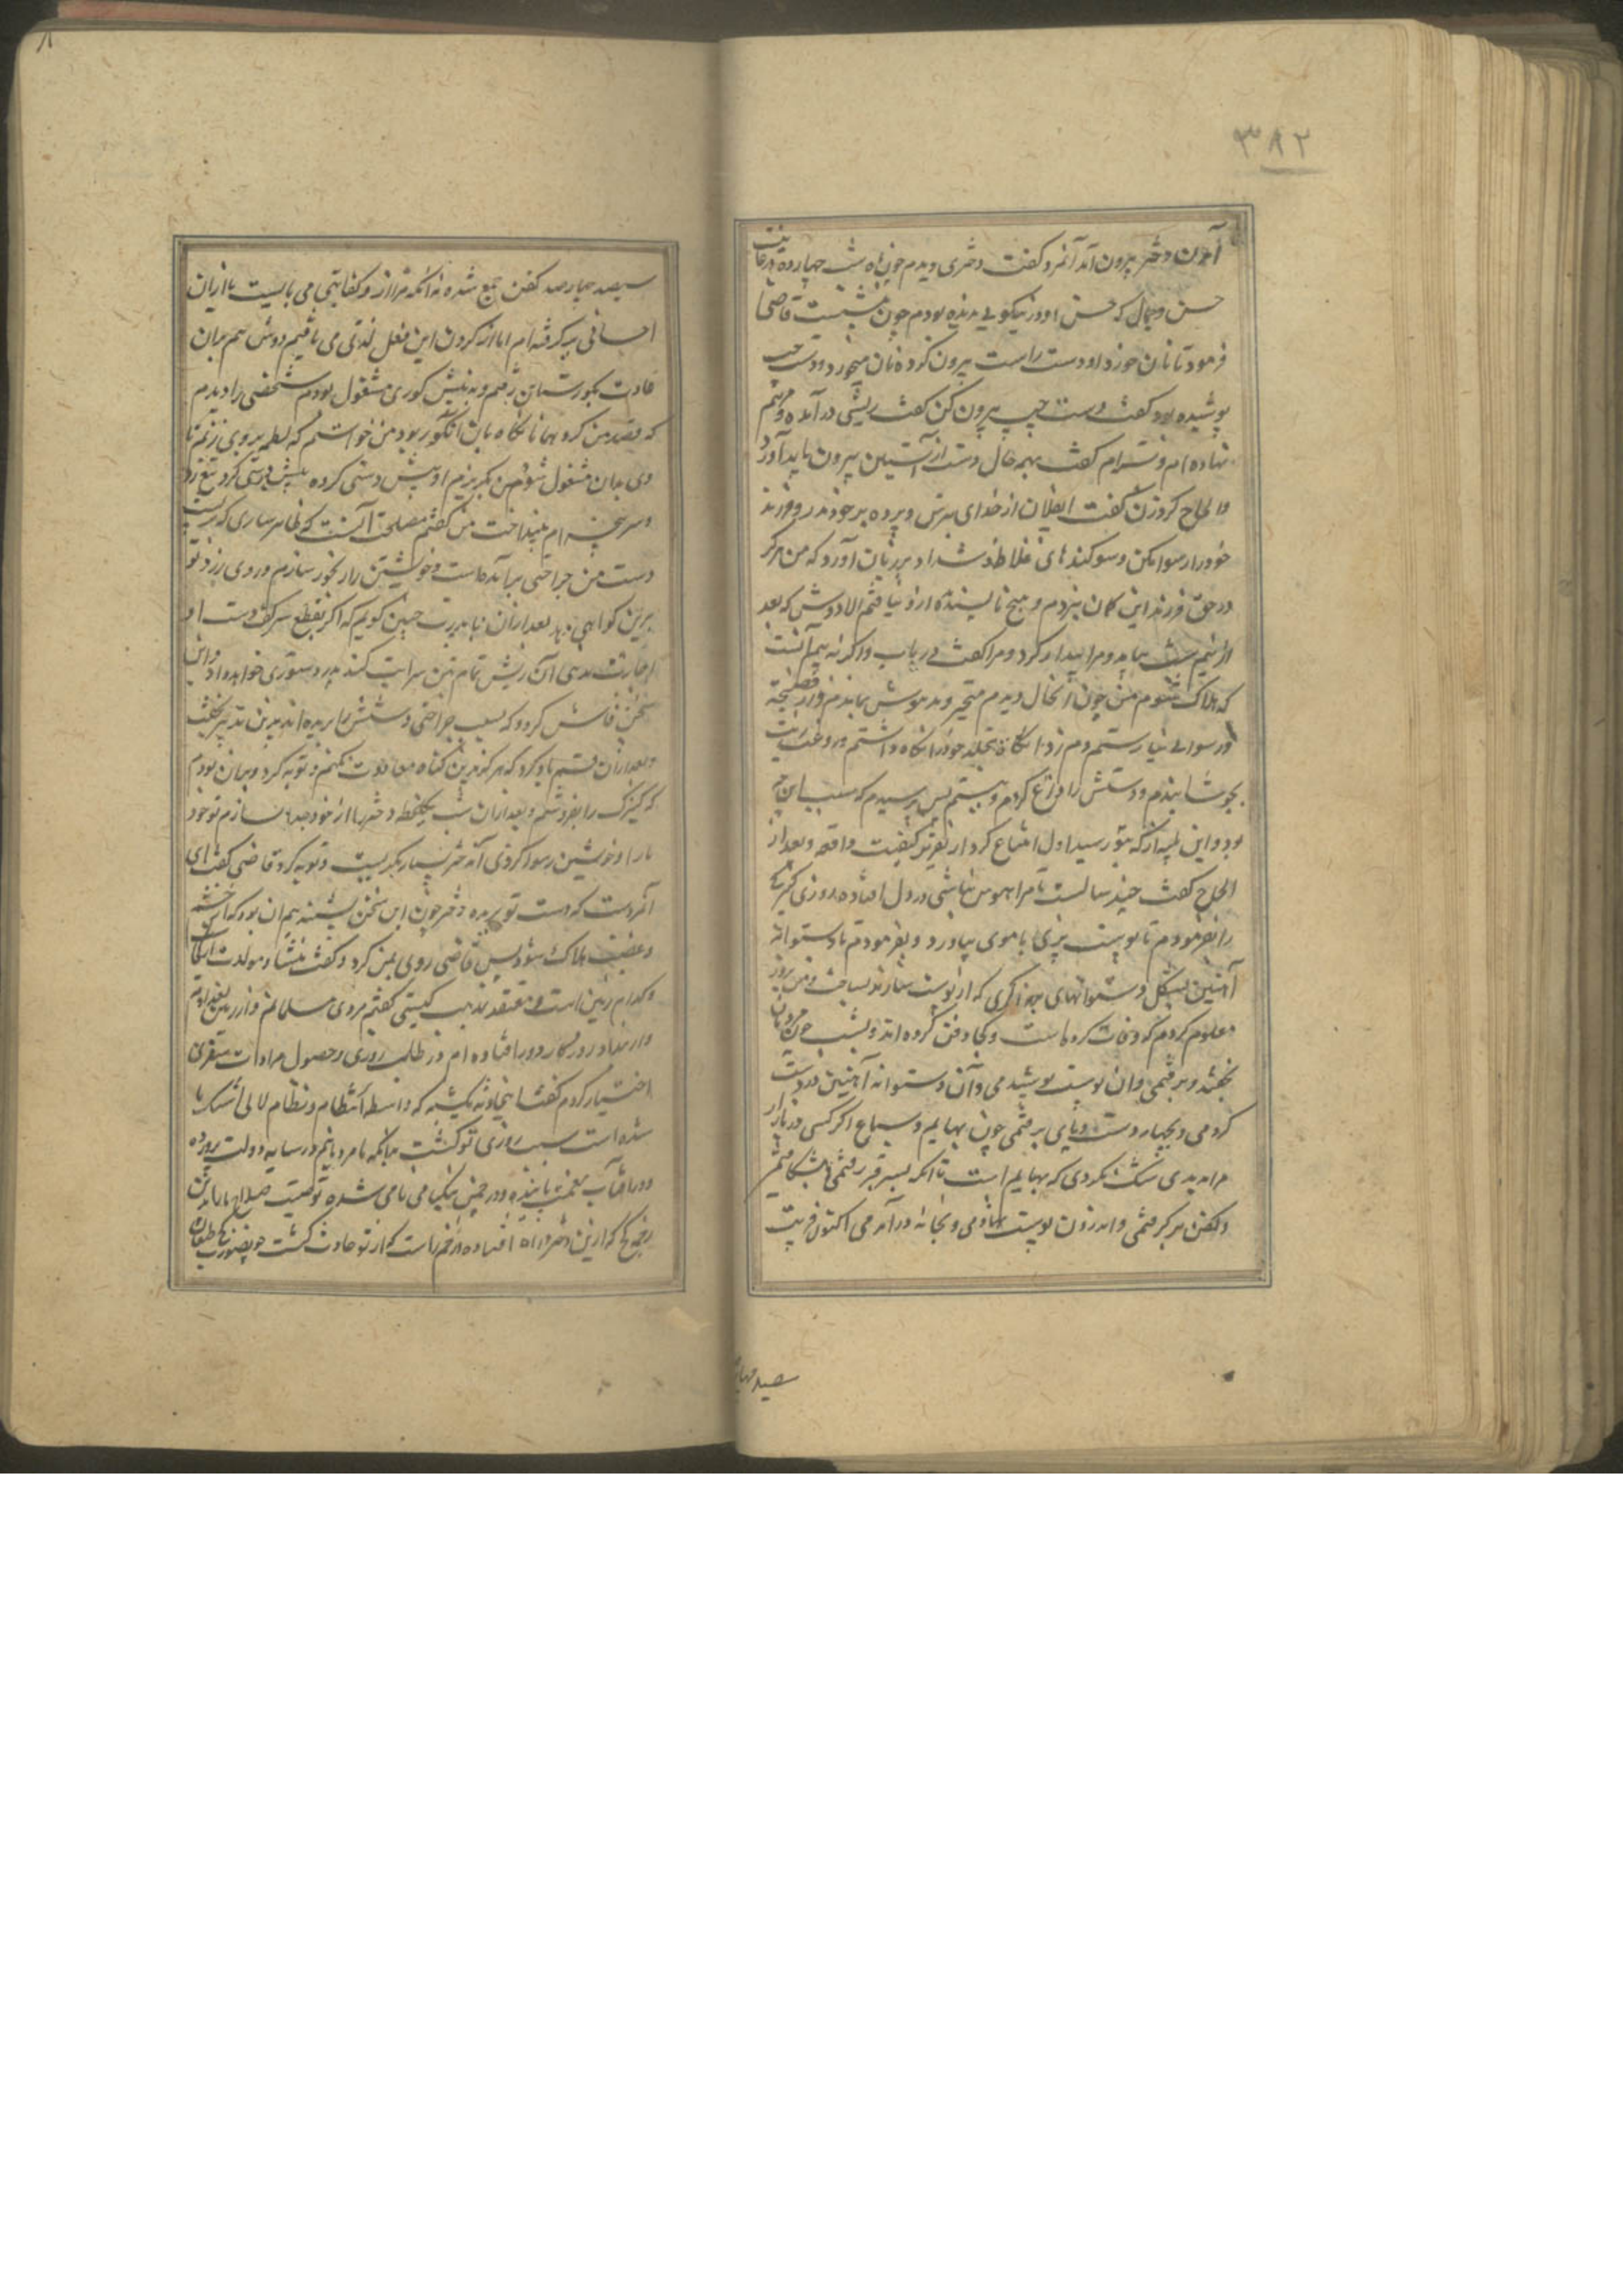 ۳۸۲
آمدن دختر بیرون آمد آنمرد کفت دختری دیدم چون ماه شب چهارده در غایت
حسن و جمال که حسن او در نیکویی ندیده بودم چون بنشست قاضی
فرمود تا نان خورد او دست راست بیرون کرده نان میخورد و دست چپ
پوشیده بود کفت دست چپ بیرون کن کفت ریشی در آمده و مرهم
نهاده ام کفت بهمه حال دست از آستین بیرون باید آورد
و الحاح کرد زن کفت ایفلان از خدای بترس و پرده بر خود و فرزند
خود را رسوا مکن و سوکندهای غلاظ و شداد بر زبان آورد که من هرکز
در حق فرزند این کمان نبردم و هیچ ناپسندیده ازو نیافتم الا دوش که بعد
از نیم شب بیامد و مرا بیدار کرد و مرا کفت دریاب و اکر نه بیم آنست
که هلاک شوم من چون آنحال دیدم متحیر و مدهوش بماندم و از فضیحت
و رسوایی نیارستم دم زد آنکاه بتجلد خود را نکاه داشتم و روغن زیت
بجوشانیدم و دستش را داغ کردم و ببستم پس پرسیدم که سبب این چه
بود و این بتو رسید اول امتناع کرد از تقریر کیفیت واقعه و بعد از
الحاح کفت چند سالست تا مرا هوس نباشی در دل افتاده روزی کنیزک
را بفرمودم تا پوست بزی با موی بیاورد و بفرمودم تا دستوانه
آهنین بشکل دستوانهای که از پوست سازند بساخت و من بروز
معلوم کردم که وفات کرده است و کجا دفن کرده اند و بشب چون مردمان
بخفتند و برفتمی و آن پوست پوشیدمی و آن دستوانه آهنین در دست
کردمی و بچهار دست و پای برفتمی چون بهایم و سباع اکر کسی در بازار
مرا بدیدی شک نکردی که بهایم است تا آنکه بسر قبر رفتمی و بشکافتمی
و کفن بر کرفتمی و اندرون پوست نهادمی و بخانه در آمدمی اکنون قریب
سیصد
سیصد چهارصد کفن جمع شده نه آنکه مرا از و کفایتی می بایست یا از ان
احسانی بر کرفته ام اما از کردن این فعل لذتی می یافتم دوش هم بران
عادت بکورستان رفتم و به نبش کوری مشغول بودم شخصی را دیدم
که قصد من کرد همانا نکاه بان آن کور بود من خواستم که لطمه بر روی زنم تا
وی بدان مشغول شود من بکریزم او پیش دستی کرده تیغ زد
و سر پنجه ام بینداخت من کفتم مصلحت آنست که ظاهر سازی که بر
دست من جراحتی برآمده است و خویشتن را رنجور سازم و روی زرد تو
برین کواهی دهد بعد از ان با پدرت چنین کویم که اکر بقطع سر کف دست او
اجازت ندهی آن ریش تمام تن سرایت کند پدر دستوری خواهد داد و این
سخن فاش کردد که بسبب جراحتی دستش را بریده اند بدین تدبیر
و بعد از ان قسم یاد کرد که هرکز بدین کناه معاودت نکنم و توبه کرد و بران بودم
که کنیزک را بفروشم و بعد از ان شب یکلحظه دختر را از خود جدا نسازم تو خود
ما را و خویشتن رسوا کردی آن دختر بسیار بکریست و توبه کرد قاضی کفت این
آنمردست که دست تو بریده دختر چون این سخن بشنید بیم ان بود که از خشم
و غضب هلاک شود پس قاضی روی بمن کرد و کفت منشاء و مولدت از کجا
و کدام زمین است و معتقد مذهب کیستی کفتم مردی مسلمانم و از زمین بغدادم
و از بغداد روزکار دور افتاده ام در طلب روزی و حصول مرادات سفری
اختیار کردم کفت اینحادثه یکشبه که واسطه انتظام و نظام لالی اشک ما
شده است سبب روزی تو کشت بدانکه ما مردمانیم در سایه دولت پرورده
و در آفتاب نعمت بالیده و در چمن نیکنامی نامی شده توقیت صلاح ما را بدین
رنج که ازین دختر در راه افتاده است که از تو حادث کشت